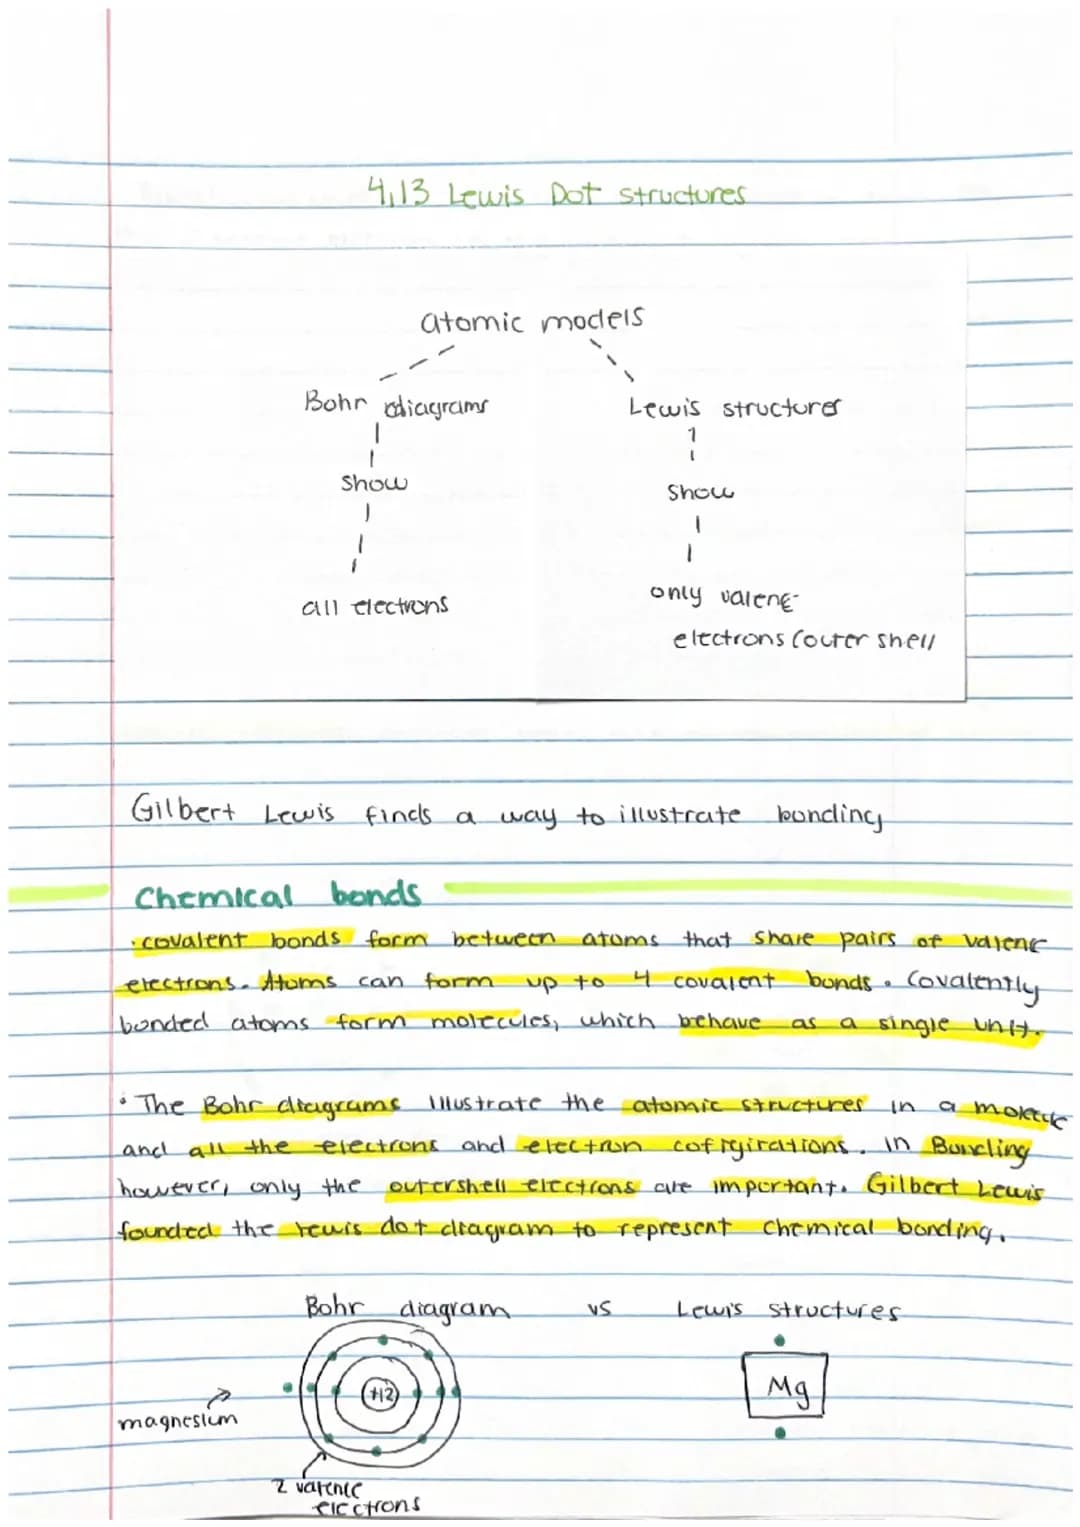 4.13 Lewis Dot structures
atomic models
Bohr diagrams Lewis structures
show show
all electrons only valene
electrons (outer shell
Gilbert Lewis finds a way to illustrate bonding
Chemical bonds
• covalent bonds form between atoms that share pairs of valene
electrons. Atoms can form up to 4 covalent bonds. Covalently
bonded atoms form molecules, which behave as a single unit.
• The Bohr diagrams illustrate the atomic structures in a molecule
and all the electrons and electron cofigirations. in Bonding
however, only the outershell electrons are important. Gilbert Lewis
founded the lewis dot diagram to represent chemical bonding.
Bohr diagram vs Lewis structures
+12 Mg
magnesium
2 valence
electrons